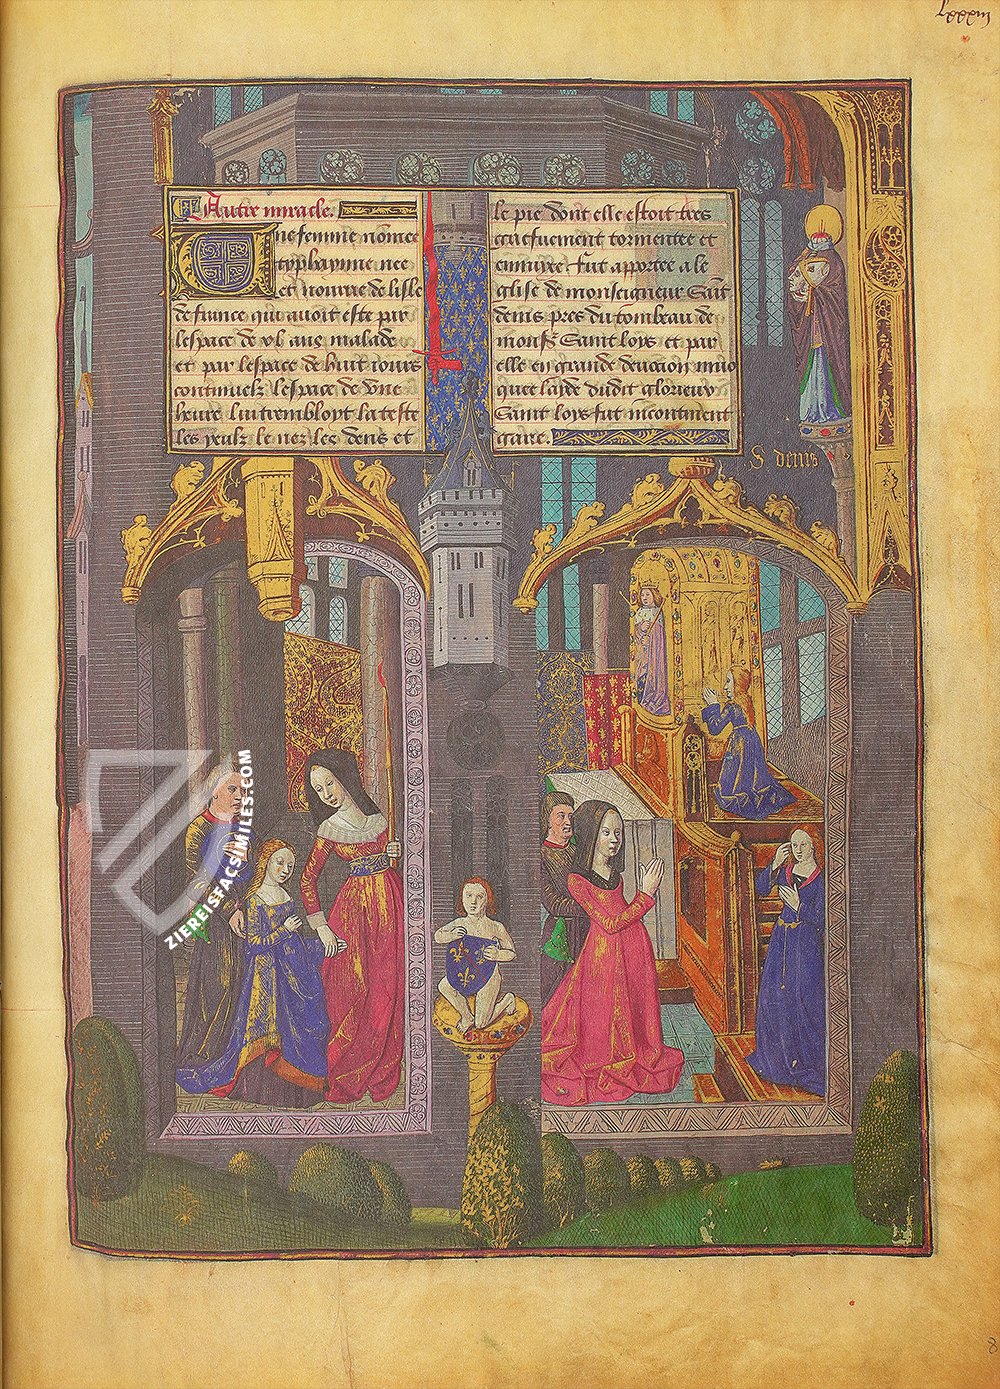 Lxxxiii
Autre miracle.
Une femme nõmee
typhaynne nee
et nourrie de lisle
de france qui auoit este par
lespace de vi. ans malade
et par lespace de huit iours
continuelz lespace de vne
heure lui trembloyt la teste
les yeulx le nez les dens et
le pie dont elle estoit tres
griefuement tormentee et
ennuyee fut apportee a le
glise de monseigneur Saint
denis pres du tombeau de
monsr Saint loys et par
elle en grande deuocion inuo
quee laide dudit glorieux
Saint loys fut incontinent
garie.
S denis
ZIEREISFACSIMILES.COM
8